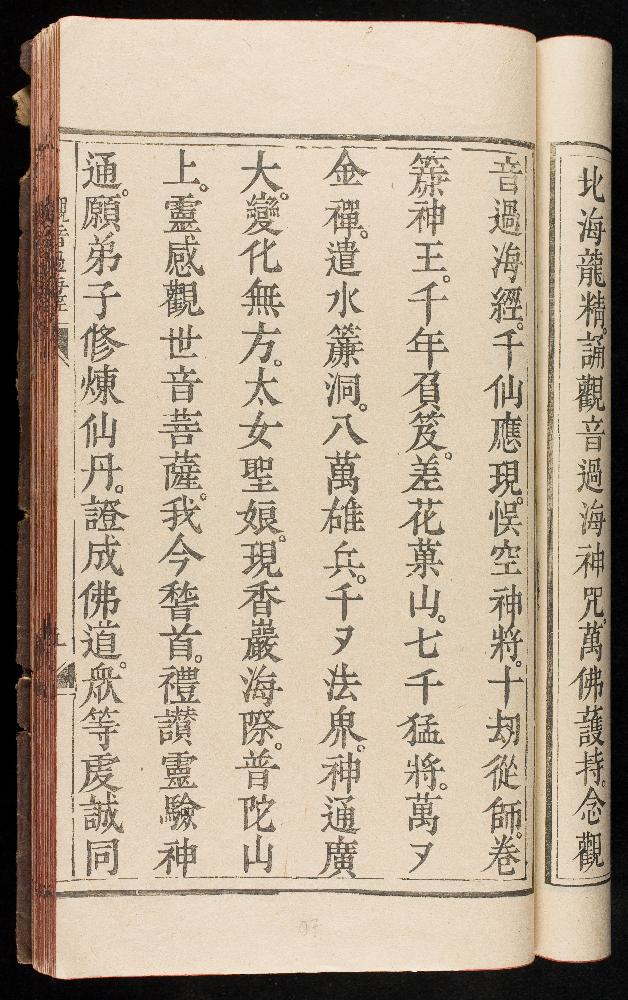 北海龍精。誦觀音過海神咒。萬佛護持。念觀
音過海經。千仙應現。悮空神將。十刼從師。卷
簾神王。千年負笈。差花菓山。七千猛將。萬ヌ
金禪。遣水簾洞。八萬雄兵。千ヌ法界。神通廣
大。變化無方。太女聖娘。現香巖海際。普陀山
上。靈感觀世音菩薩。我今稽首。禮讚靈驗神
通。願弟子修煉仙丹。證成佛道。衆等虔誠同
觀音過海經